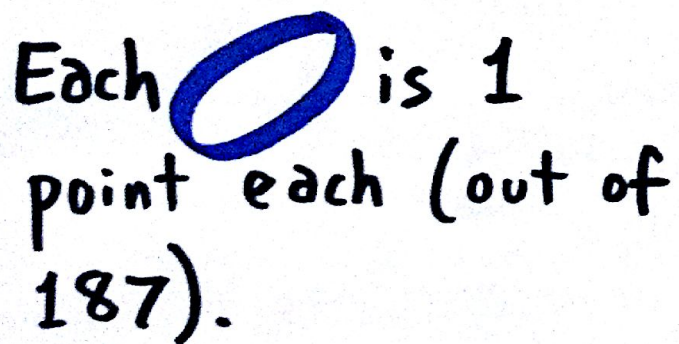 Each is 1
point each (out of
187).